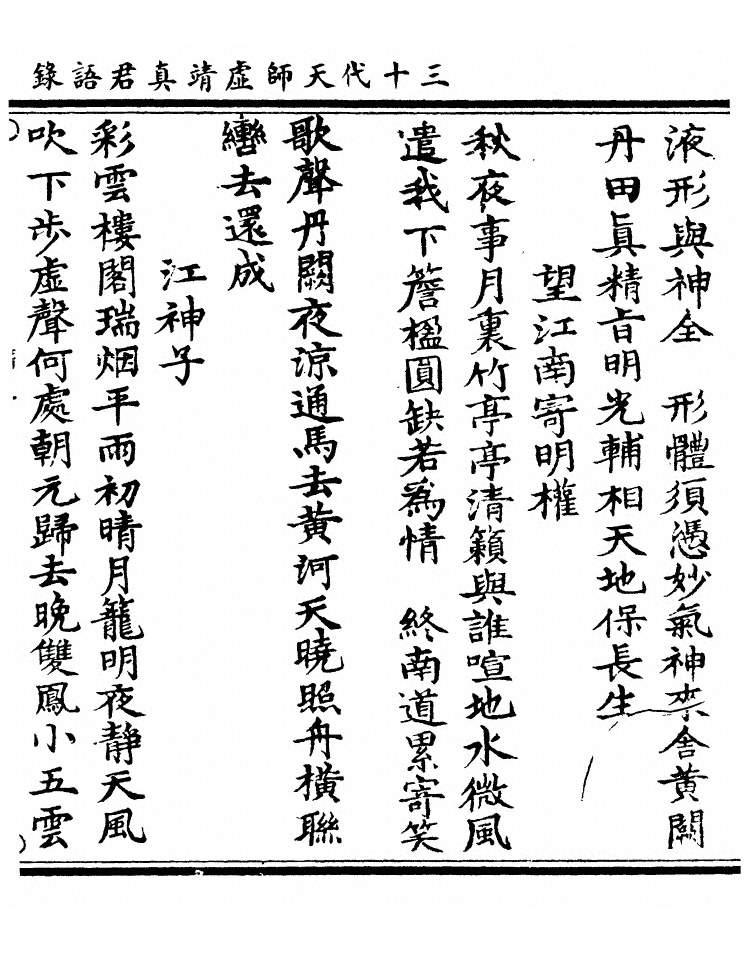 三十代天師虛靖真君語錄
液形與神全　形體須憑妙氣神來舍黄闕
丹田眞精旨明光輔相天地保長生
望江南寄明權
秋夜事月裏竹亭亭清籟與誰喧地水微風
遣我下簷楹圓缺若爲情　終南道累寄笑
歌聲丹闕夜涼通馬去黄河天曉照舟橫聯
轡去還成
江神子
彩雲樓閣瑞烟平雨初晴月籠明夜靜天風
吹下步虛聲何處朝元歸去晚雙鳳小五雲